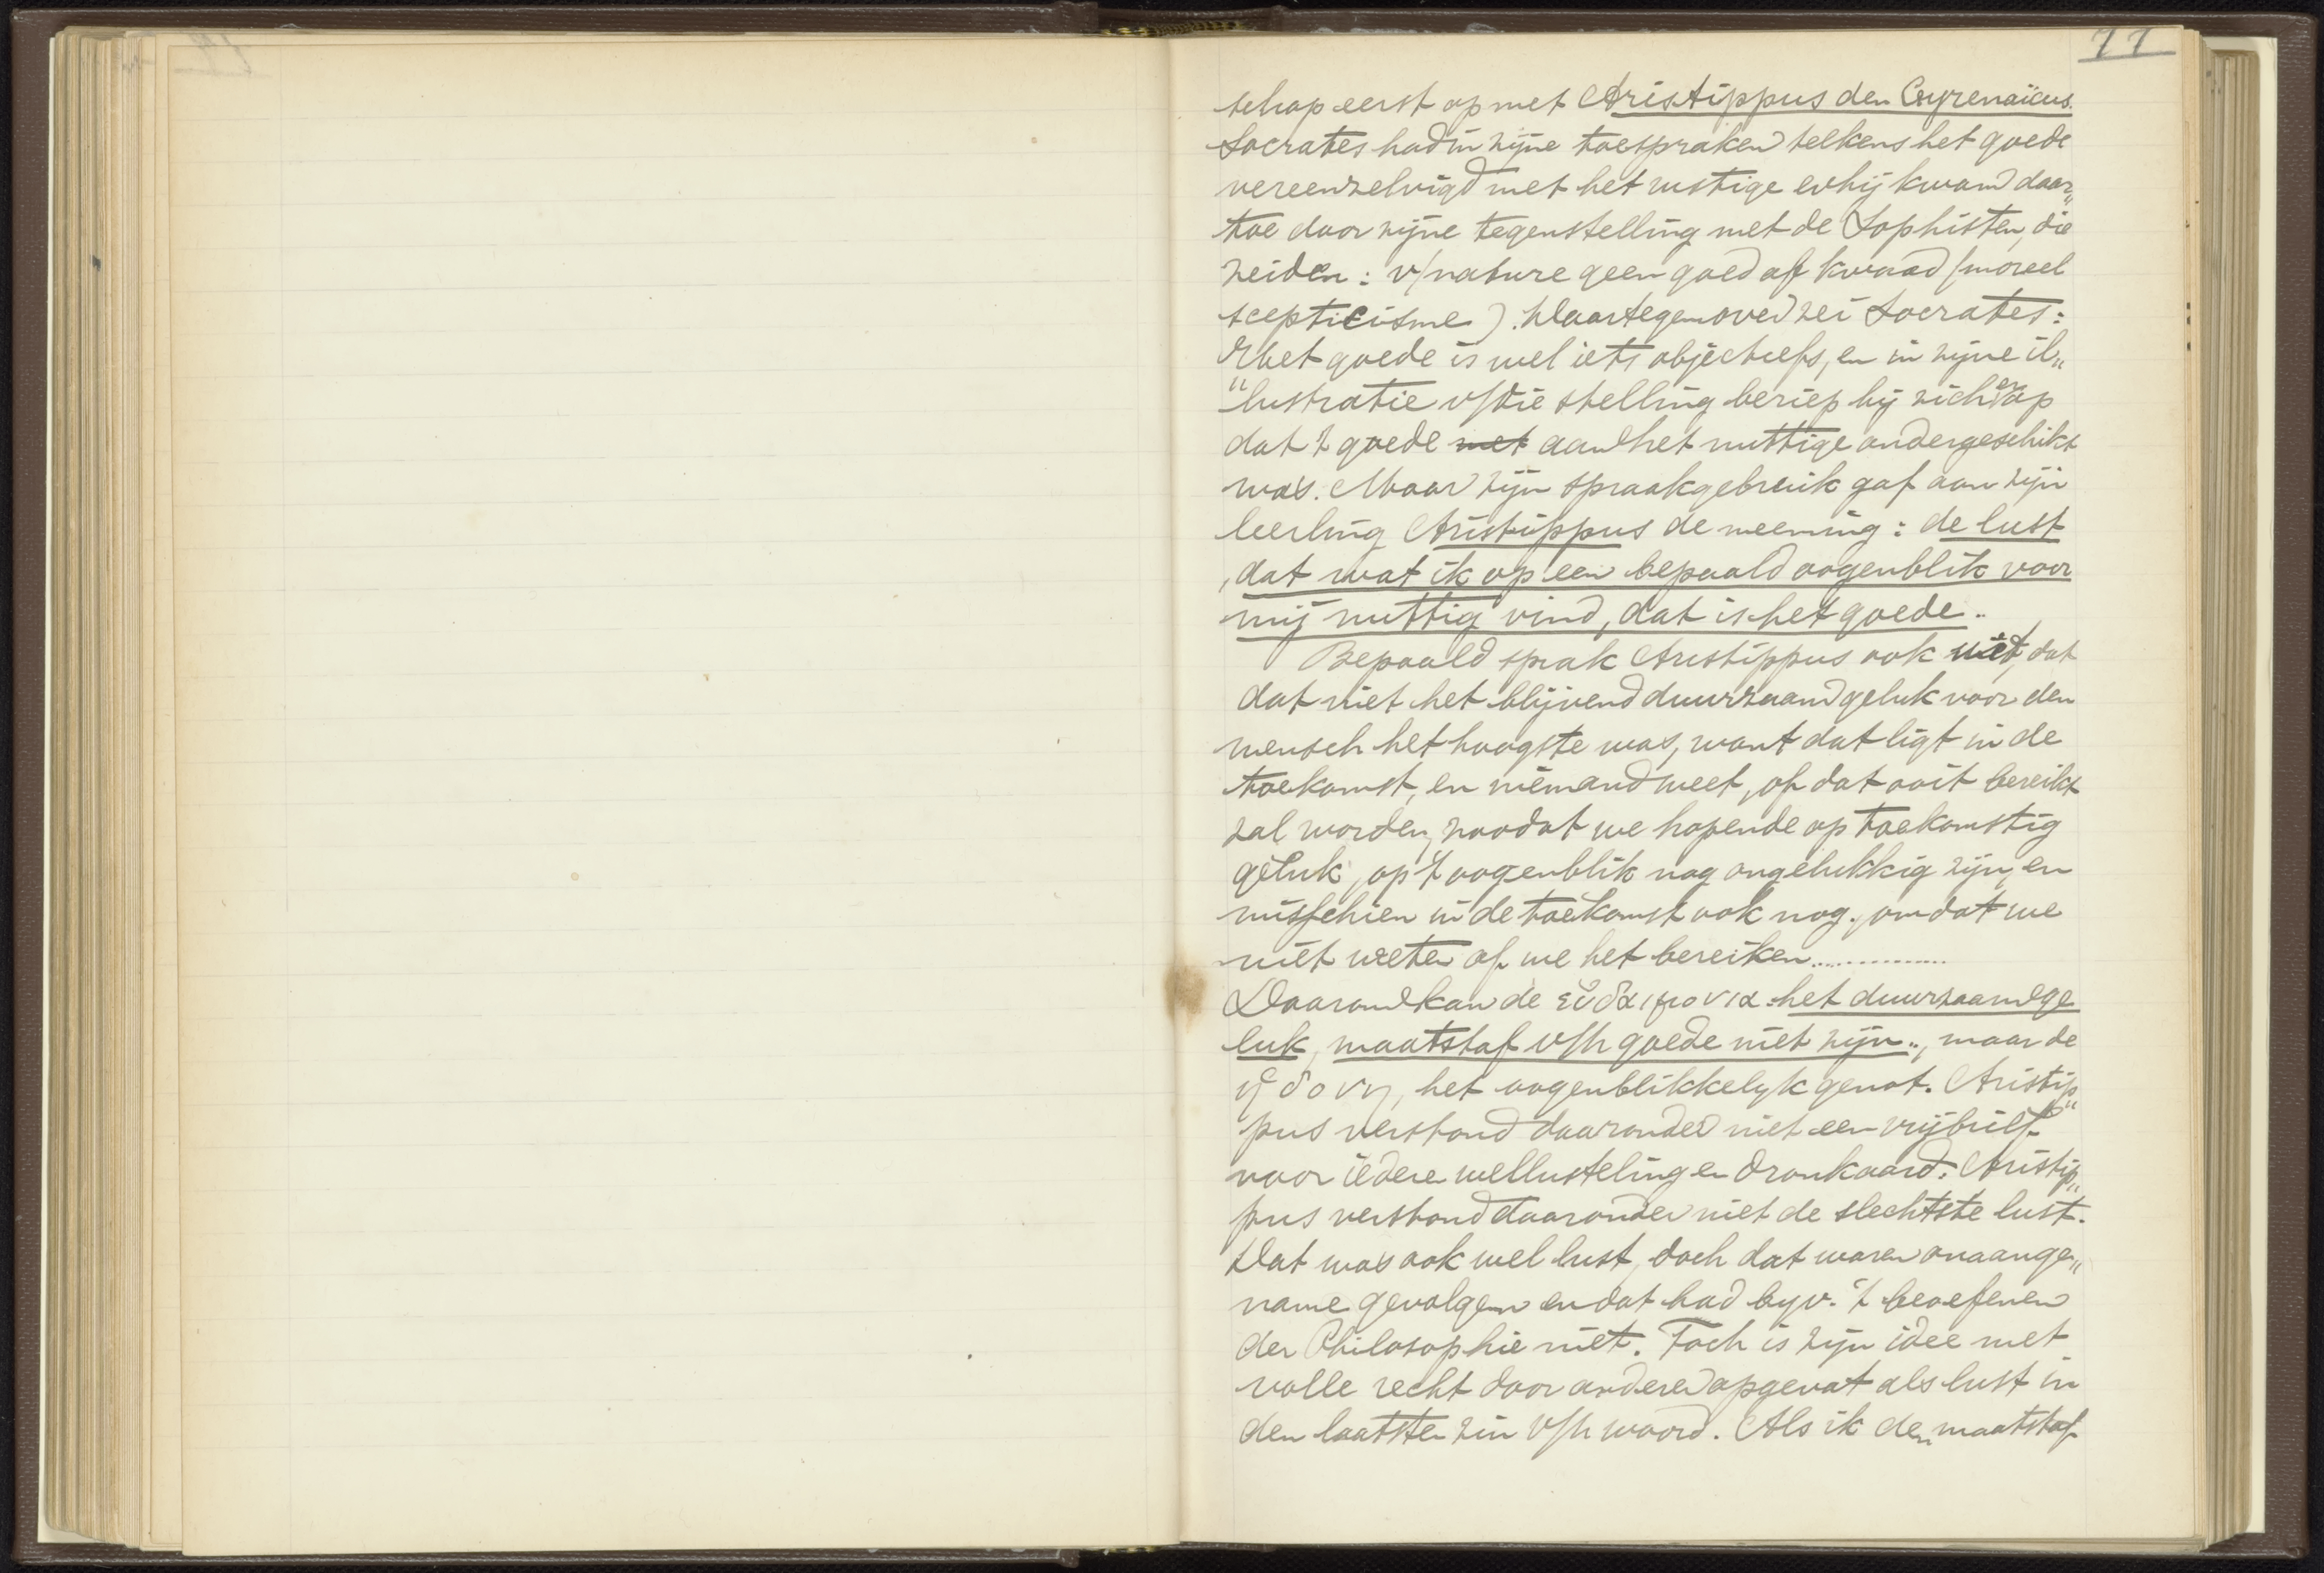 77
schap eerst op met Aristippus den Cyrenaïcus.
Socrates had in zijne toespraken telkens het goede
vereenzelvigd met het nuttige en hij kwam daar„
toe door zijne tegenstelling met de Sophisten, die
zeiden: v/nature geen goed of kwaad (moreel
scepticisme). Daartegenover zei Socrates:
het goede is wel iets objectiefs, en in zijne il„
"lustratie v/die stelling beriep hij zich er op
dat 't goede met aan het nuttige ondergeschikt
was. Maar zijn spraakgebruik gaf aan zijn
leerling Aristippus de meening: de lust
, dat wat ik op een bepaald oogenblik voor
mij nuttig vind, dat is het goede..
Bepaald sprak Aristippus ook uit, dat
dat niet het blijvend duurzaam geluk voor den
mensch het hoogste was, want dat ligt in de
toekomst, en niemand weet, of dat ooit bereikt
zal worden, zoodat we hopende op toekomstig
geluk, op 't oogenblik nog ongelukkig zijn, en
misschien in de toekomst ook nog, omdat we
niet weten of we het bereiken...............
Daarom kan de εὐδαιμονια het duurzaam ge
luk, maatstaf v/h goede niet zijn.., maar de
ἡδονη, het oogenblikkelyk genot. Aristip„
pus verstond daaronder niet een vrijbrief
voor iedere wellusteling en dronkaard. Aristip„
pus verstond daaronder niet de slechtste lust.
Dat was ook wel lust, doch dat waren onaange„
name gevolgen en dat had byv. 't beoefenen
der Philosophie niet. Toch is zijn idee met
volle recht door anderen opgevat als lust in
den laatsten zin v/h woord. Als ik den maatstaf